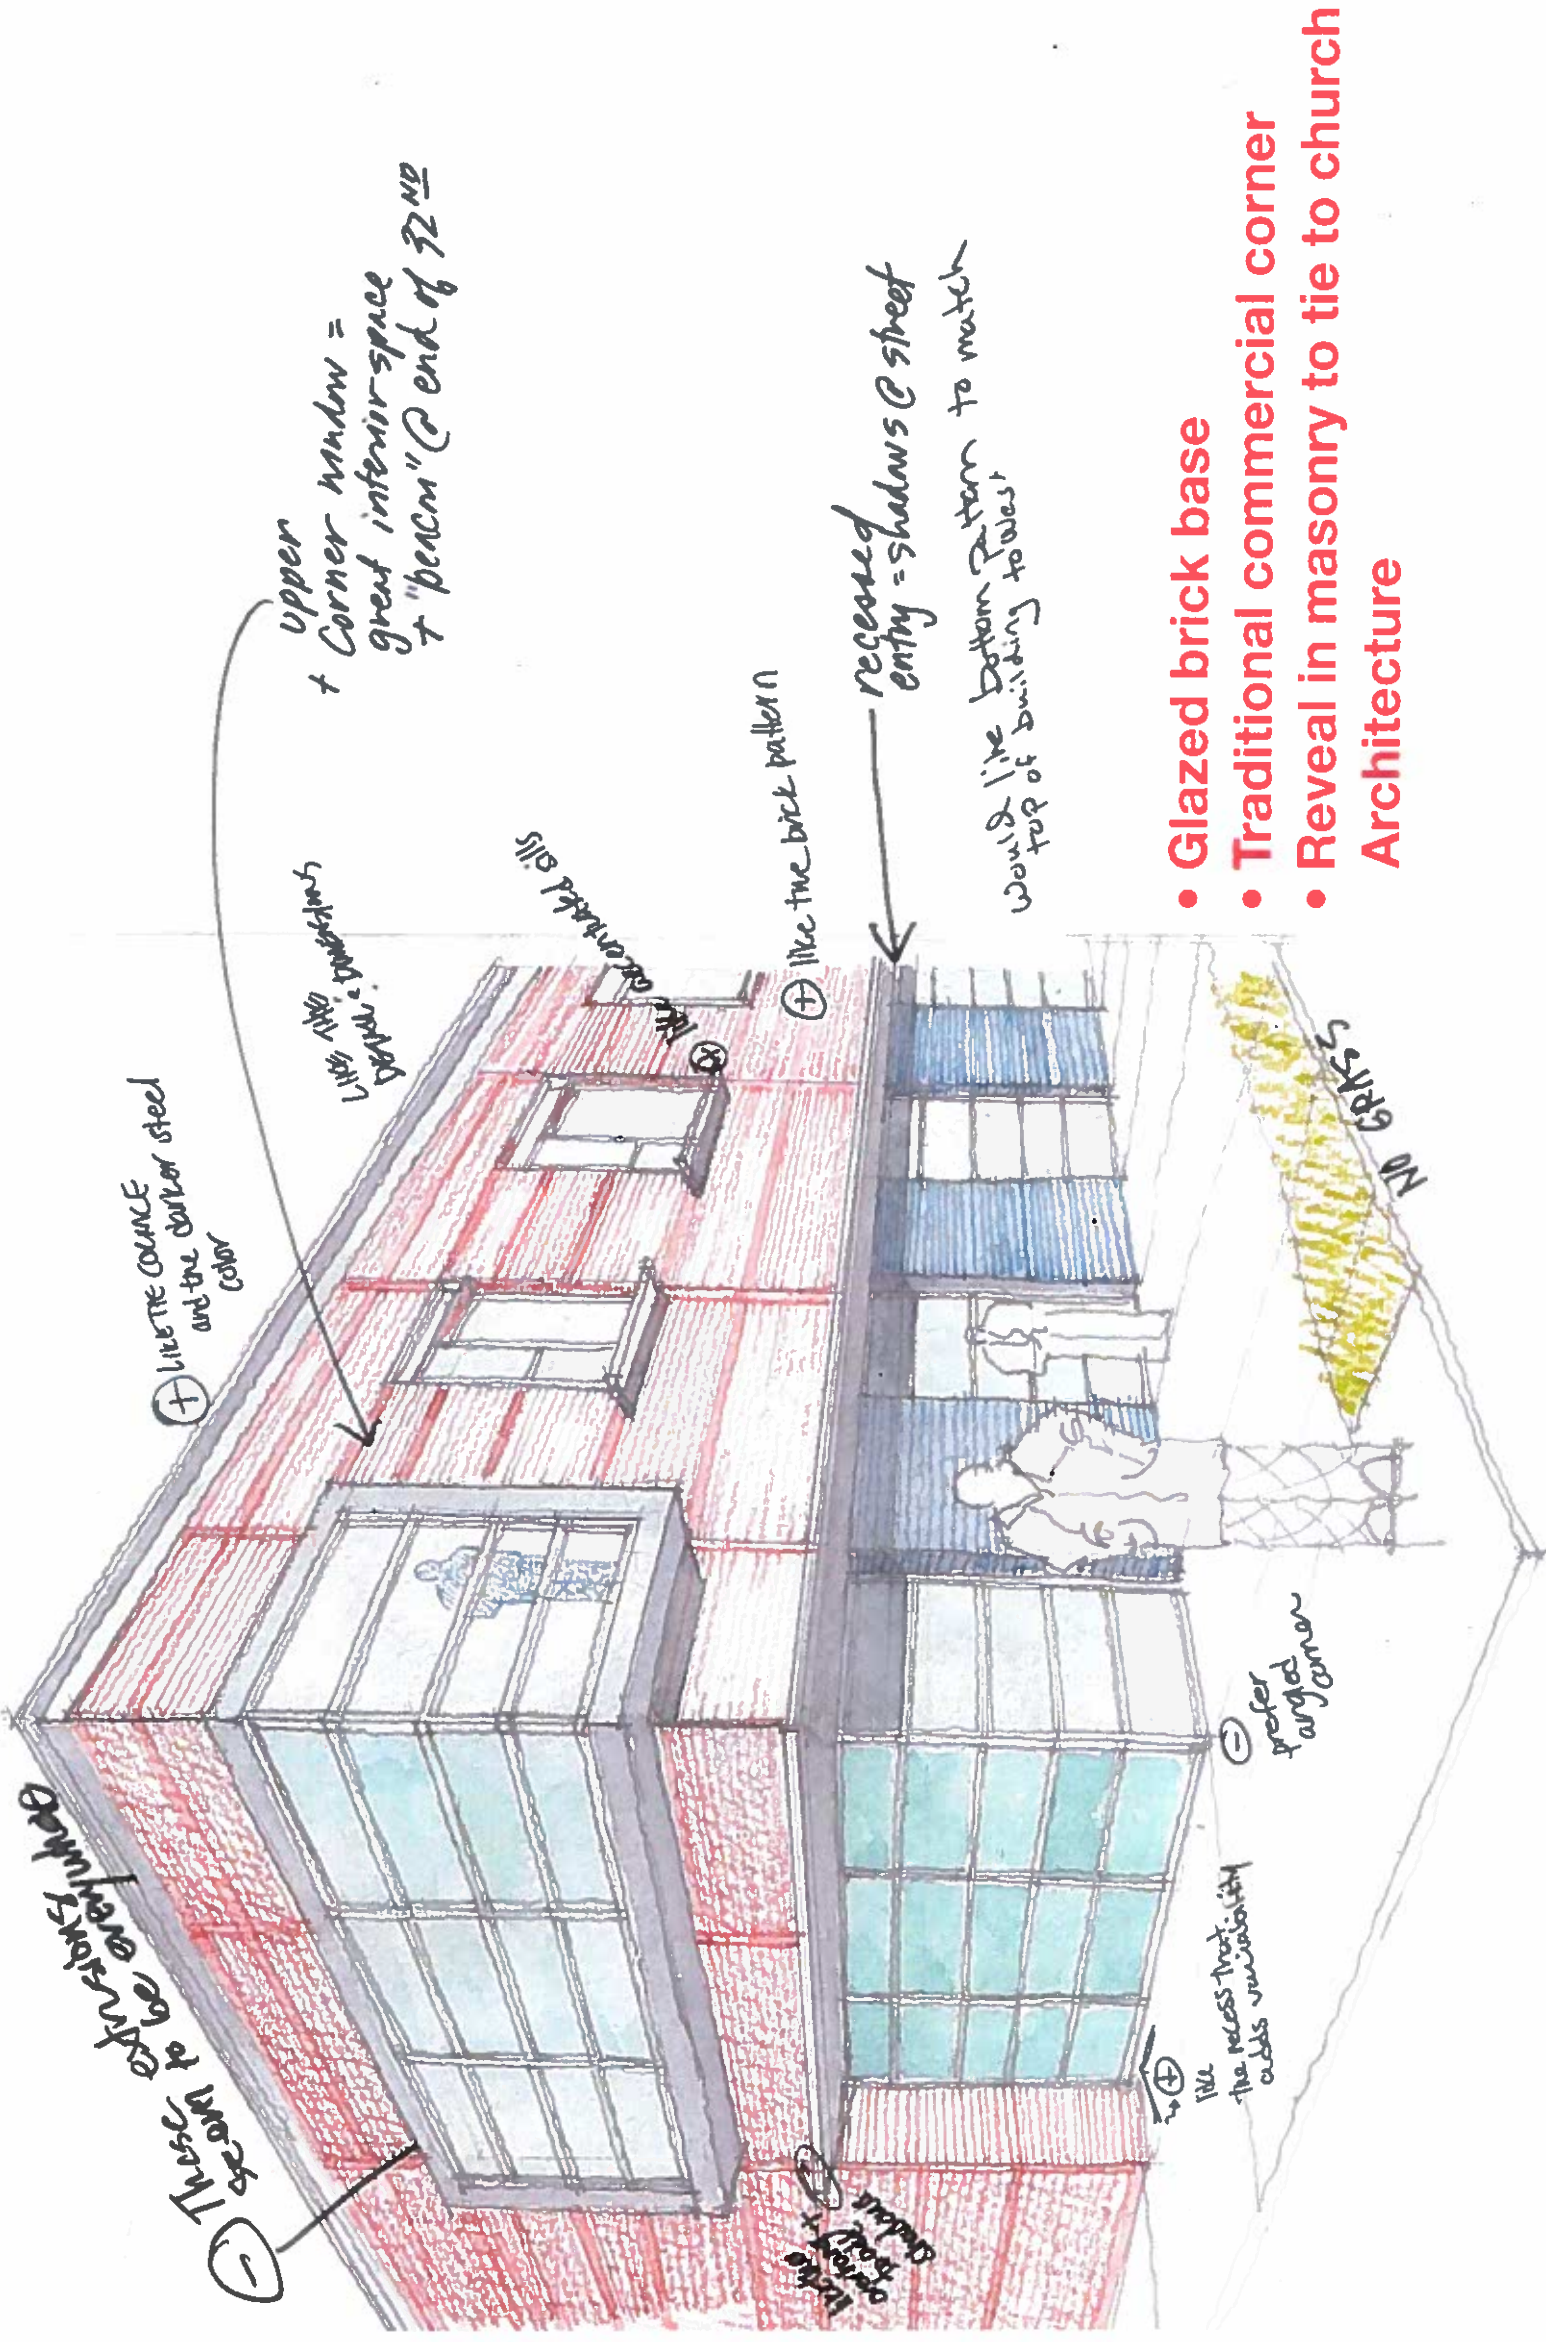 These extrusions
seem to be everywhere
+ LIKE THE CORNICE
and the darker steel
color
LIKE THIS
upper
+ Corner window =
great interior space
+ "beacon" @ end of 32ND
+ like accentuated sills
+ like the brick pattern
recessed
entry = shadows @ street
would like bottom pattern to match
top of building to west
- prefer
angled
corner
+ like
the recess that
adds variability
NO GRASS
• Glazed brick base
• Traditional commercial corner
• Reveal in masonry to tie to church
Architecture